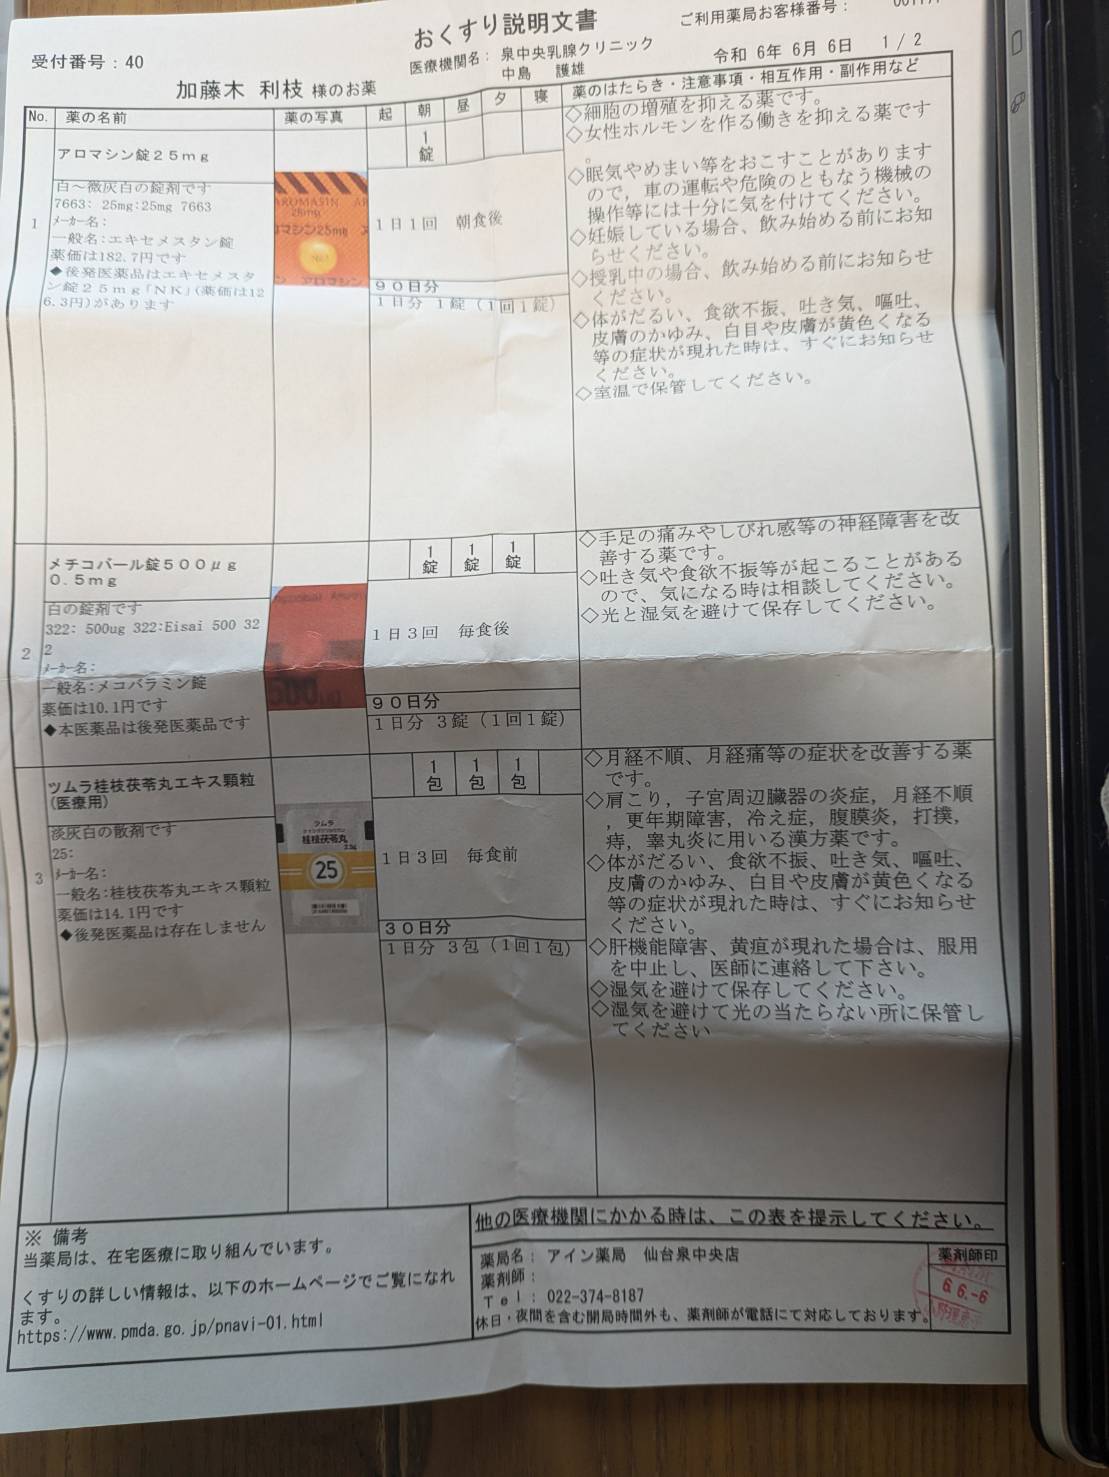 おくすり説明文書
ご利用薬局お客様番号：
受付番号：40
医療機関名： 泉中央乳腺クリニック
中島 護雄
令和 6年 6月 6日 1 / 2
加藤木 利枝 様のお薬
No. 薬の名前 薬の写真 起 朝 昼 夕 寝 薬のはたらき・注意事項・相互作用・副作用など
1
アロマシン錠２５ｍｇ
白～微灰白の錠剤です
7663: 25mg:25mg 7663
ﾒｰｶｰ名：
一般名：エキセメスタン錠
薬価は182.7円です
◆後発医薬品はエキセメスタ
ン錠２５ｍｇ「ＮＫ」（薬価は12
6.3円）があります
AROMASIN
25mg
マシン25mg
アロマシン
1
錠
1日1回 朝食後
９０日分
1日分 1錠（1回1錠）
◇細胞の増殖を抑える薬です。
◇女性ホルモンを作る働きを抑える薬です
。
◇眠気やめまい等をおこすことがあります
ので，車の運転や危険のともなう機械の
操作等には十分に気を付けてください。
◇妊娠している場合、飲み始める前にお知
らせください。
◇授乳中の場合、飲み始める前にお知らせ
ください。
◇体がだるい、食欲不振、吐き気、嘔吐、
皮膚のかゆみ、白目や皮膚が黄色くなる
等の症状が現れた時は、すぐにお知らせ
ください。
◇室温で保管してください。
2
メチコバール錠５００μｇ
０．５ｍｇ
白の錠剤です
322: 500ug 322:Eisai 500 32
2
ﾒｰｶｰ名：
一般名：メコバラミン錠
薬価は10.1円です
◆本医薬品は後発医薬品です
500
1
錠
1
錠
1
錠
1日3回 毎食後
９０日分
1日分 3錠（1回1錠）
◇手足の痛みやしびれ感等の神経障害を改
善する薬です。
◇吐き気や食欲不振等が起こることがある
ので、気になる時は相談してください。
◇光と湿気を避けて保存してください。
3
ツムラ桂枝茯苓丸エキス顆粒
（医療用）
淡灰白の散剤です
25:
ﾒｰｶｰ名：
一般名：桂枝茯苓丸エキス顆粒
薬価は14.1円です
◆後発医薬品は存在しません
ツムラ
桂枝茯苓丸
25
1
包
1
包
1
包
1日3回 毎食前
３０日分
1日分 3包（1回1包）
◇月経不順、月経痛等の症状を改善する薬
です。
◇肩こり，子宮周辺臓器の炎症，月経不順
，更年期障害，冷え症，腹膜炎，打撲，
痔，睾丸炎に用いる漢方薬です。
◇体がだるい、食欲不振、吐き気、嘔吐、
皮膚のかゆみ、白目や皮膚が黄色くなる
等の症状が現れた時は、すぐにお知らせ
ください。
◇肝機能障害、黄疸が現れた場合は、服用
を中止し、医師に連絡して下さい。
◇湿気を避けて保存してください。
◇湿気を避けて光の当たらない所に保管し
てください
※ 備考
当薬局は、在宅医療に取り組んでいます。
くすりの詳しい情報は、以下のホームページでご覧になれ
ます。
https://www.pmda.go.jp/pnavi-01.html
他の医療機関にかかる時は、この表を提示してください。
薬局名： アイン薬局 仙台泉中央店
薬剤師：
Ｔｅｌ： 022-374-8187
休日・夜間を含む開局時間外も、薬剤師が電話にて対応しております。
薬剤師印
6.6.-6